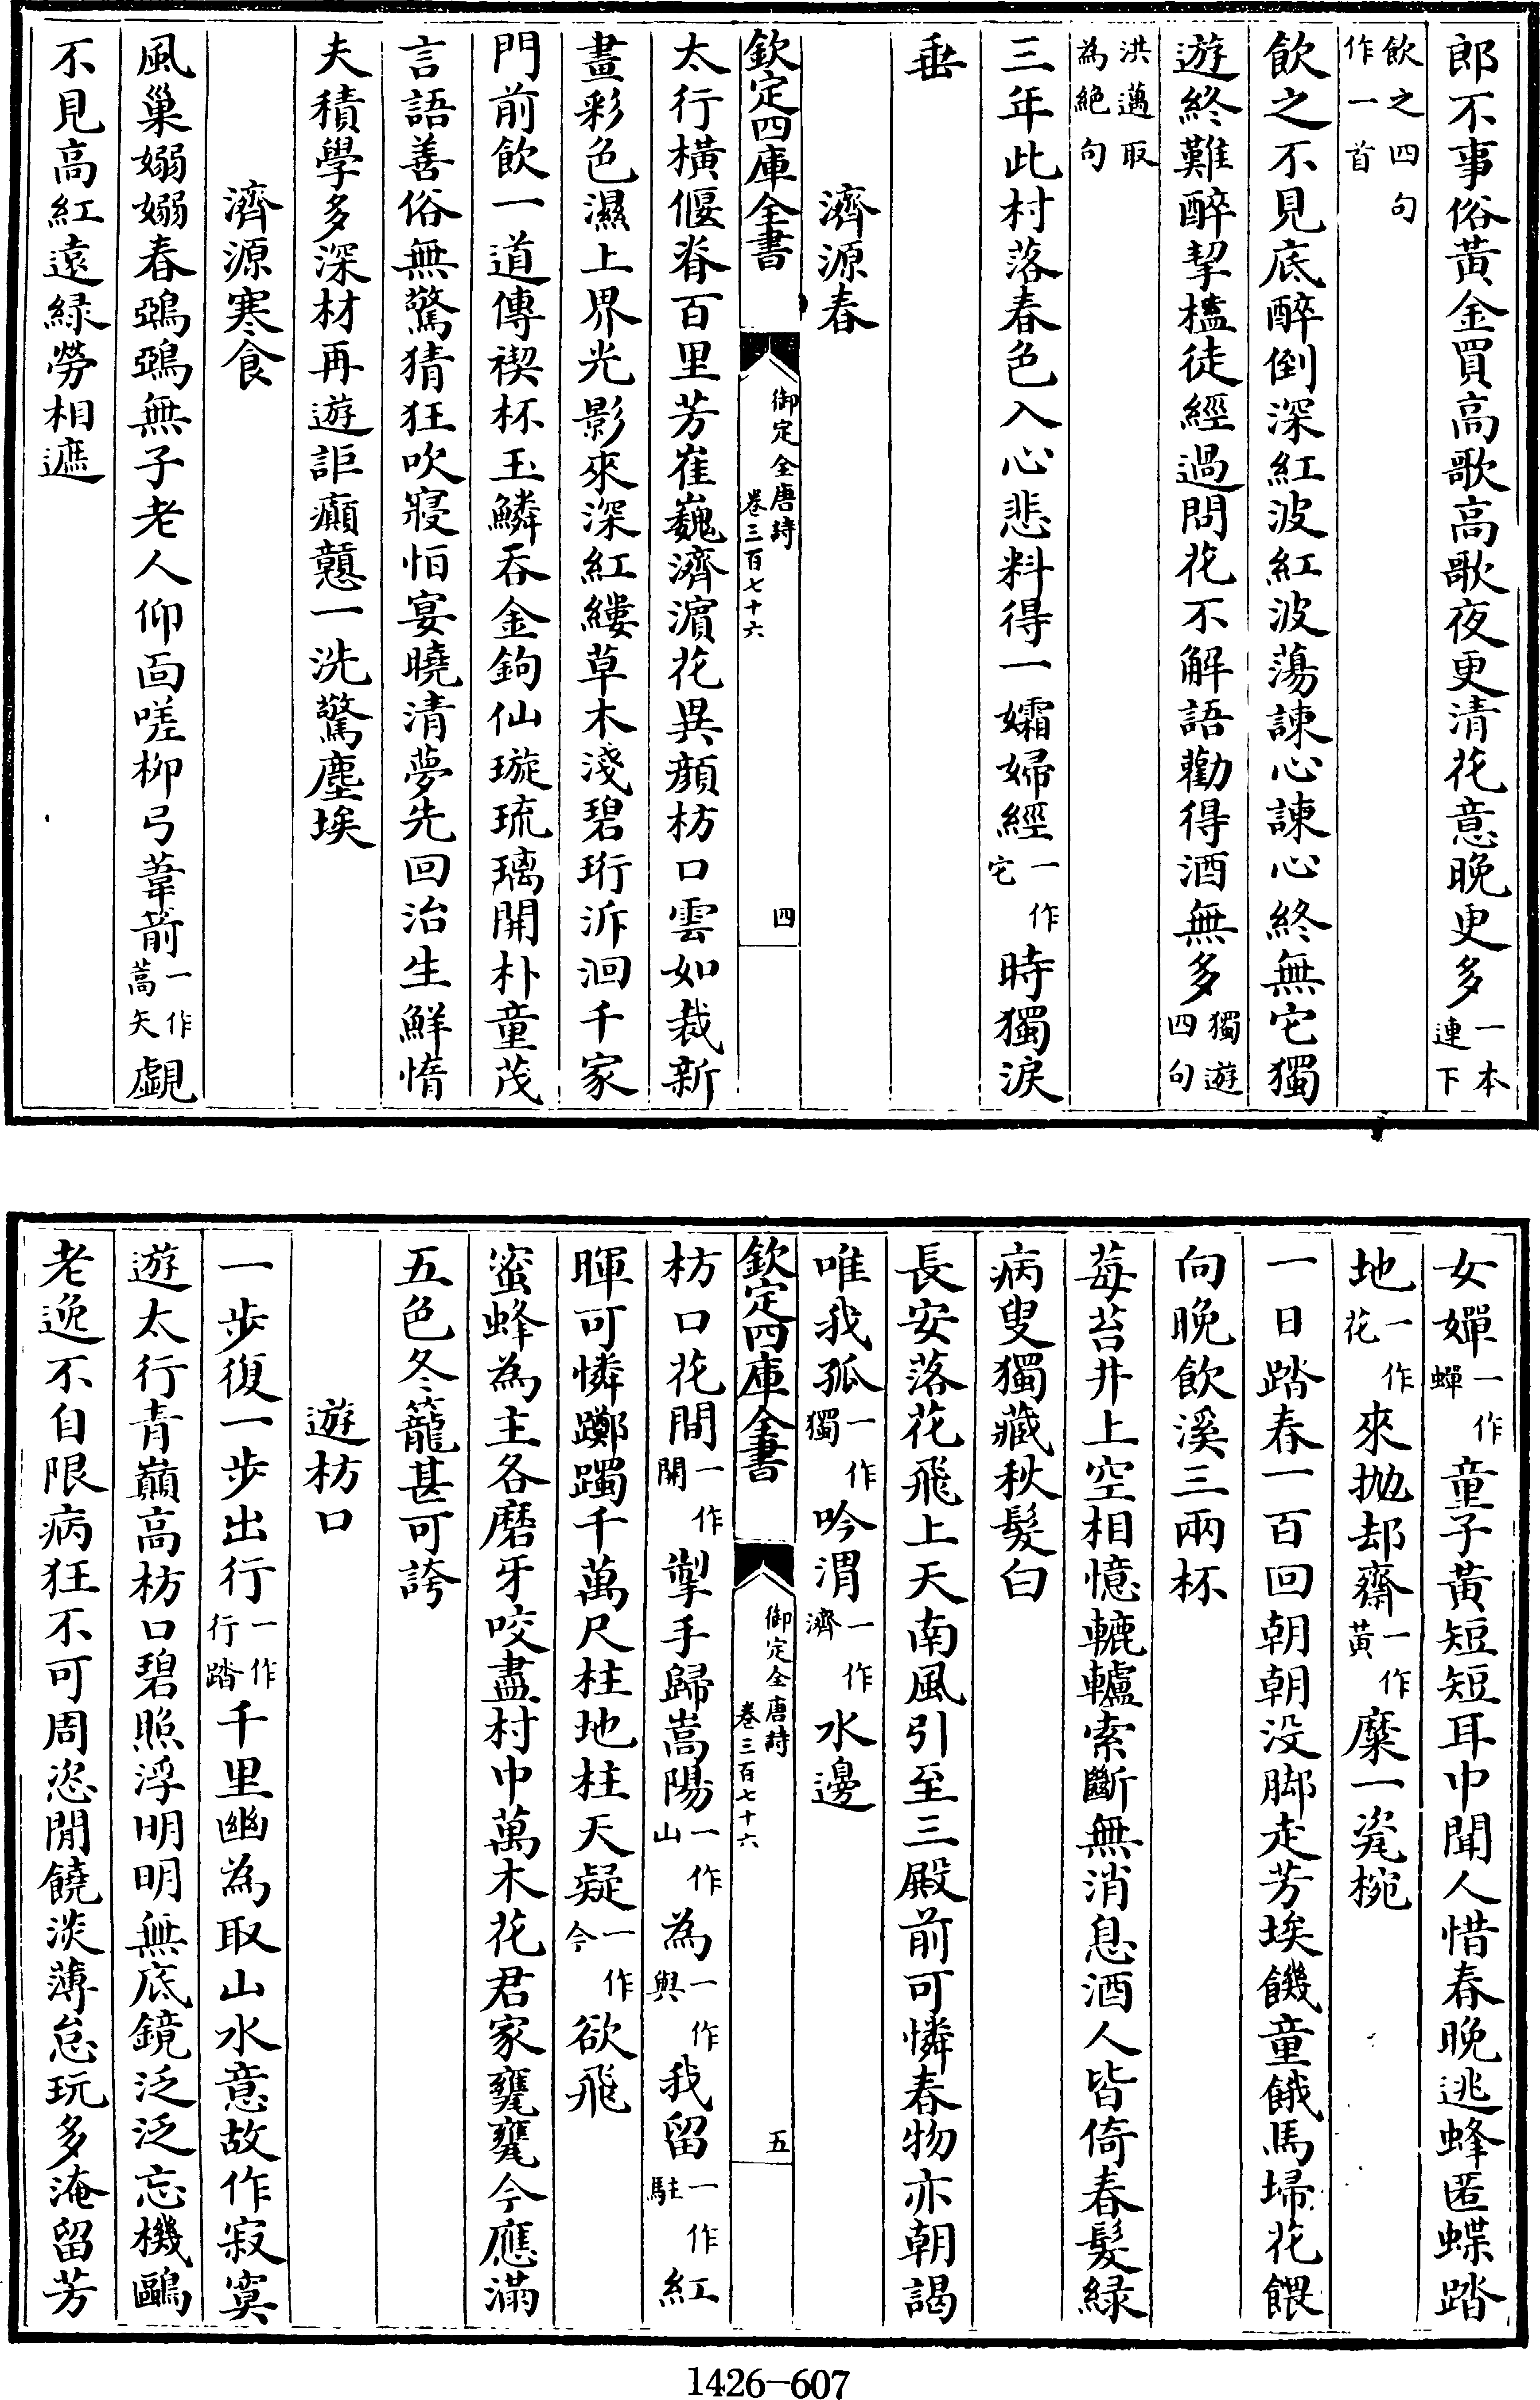 郎不事俗黃金買高歌高歌夜更清花意晚更多一本連下
飲之四句作一首
飲之不見底醉倒深紅波紅波蕩諫心諫心終無它獨
遊終難醉挈榼徒經過問花不解語勸得酒無多獨遊四句
洪邁取為絕句
三年此村落春色入心悲料得一孀婦經一作它時獨淚
垂
濟源春
欽定四庫全書 御定全唐詩 卷三百七十六 四
太行橫偃脊百里芳崔巍濟濵花異顔枋口雲如裁新
畫彩色濕上界光影來深紅縷草木淺碧珩泝洄千家
門前飲一道傳禊杯玉鱗吞金鉤仙璇琉璃開朴童茂
言語善俗無驚猜狂吹寢怕宴曉清夢先回治生鮮惰
夫積學多深材再遊詎癲戇一洗驚塵埃
濟源寒食
風巢嫋嫋春鵶鵶無子老人仰面嗟柳弓葦箭一作蒿矢覷
不見高紅遠緑勞相遮
女嬋一作蟬童子黃短短耳中聞人惜春晚逃蜂匿蝶踏
地一作花來抛却齋一作黃糜一瓷椀
一日踏春一百回朝朝沒脚走芳埃饑童餓馬埽花餵
向晚飲溪三兩杯
莓苔井上空相憶轆轤索斷無消息酒人皆倚春髮緑
病叟獨藏秋髮白
長安落花飛上天南風引至三殿前可憐春物亦朝謁
唯我孤一作獨吟渭一作濟水邊
欽定四庫全書 御定全唐詩 卷三百七十六 五
枋口花間一作開掣手歸嵩陽一作山為一作與我留一作駐紅
暉可憐躑躅千萬尺柱地柱天疑一作今欲飛
蜜蜂為主各磨牙咬盡村中萬木花君家甕甕今應滿
五色冬籠甚可誇
遊枋口
一步復一步出行一作行踏千里幽為取山水意故作寂寞
遊太行青巔高枋口碧照浮明明無底鏡泛泛忘機鷗
老逸不自限病狂不可周恣閒饒淡薄怠玩多淹留芳
1426-607